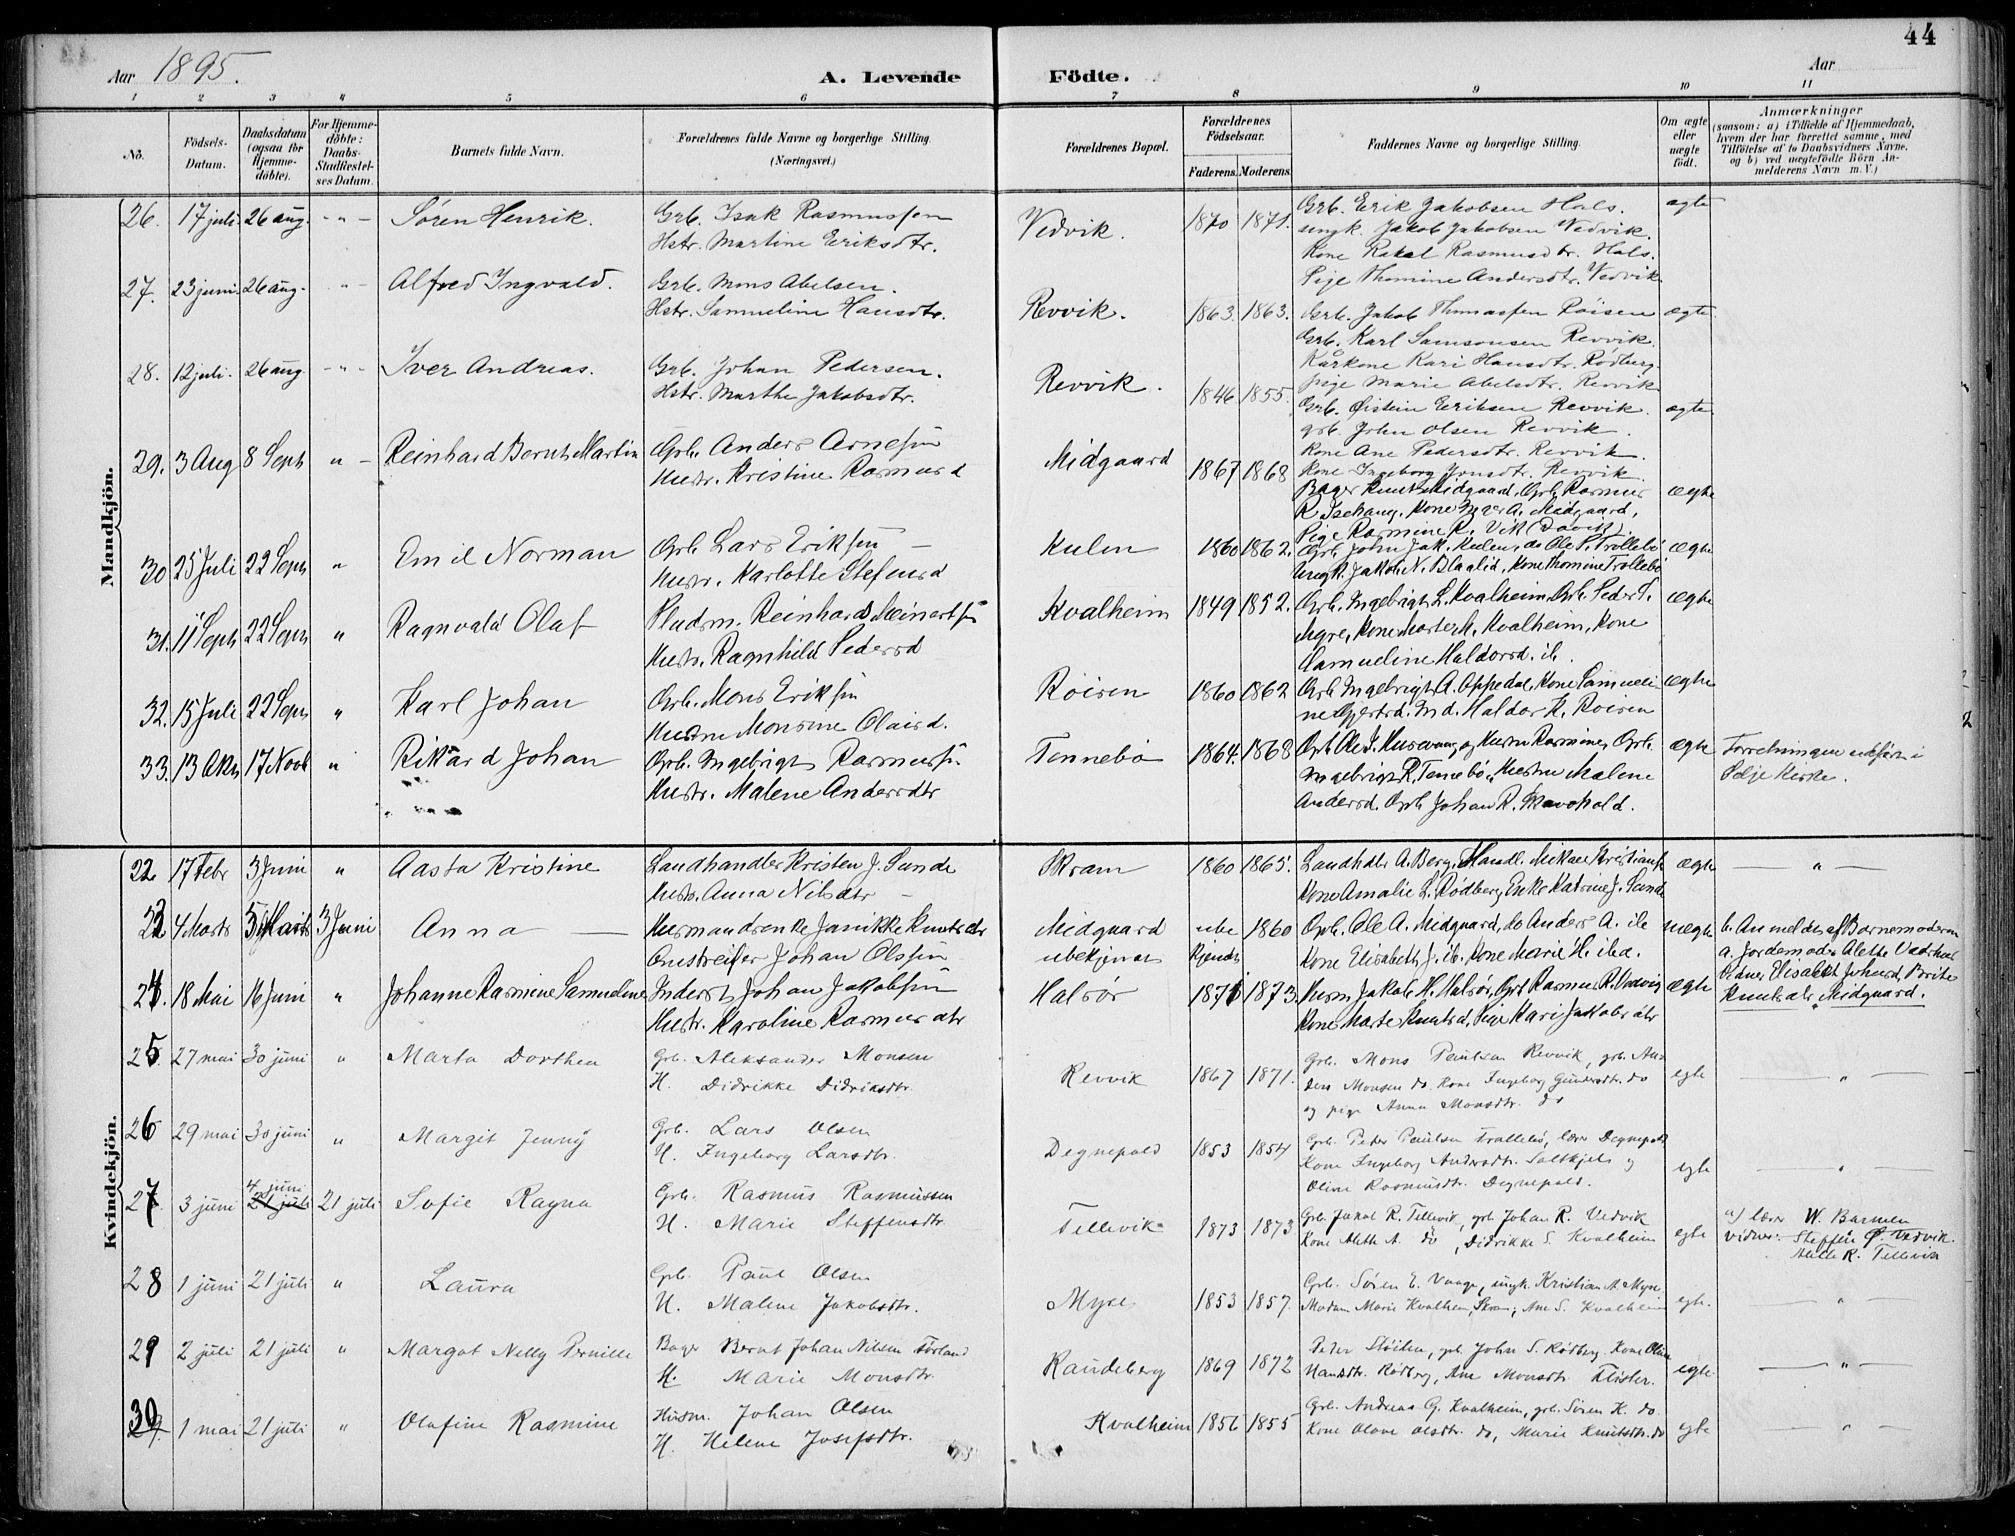 44
Aar 1895.
A. Levende
Födte.
Aar
1 2 3 4 5 6 7 8 9 10 11
No.
Födsels-
Datum.
Daabsdatum
(ogsaa for
Hjemme-
döbte).
For Hjemme-
döbte:
Daabs-
Stadfæstel-
ses Datum.
Barnets fulde Navn.
Forældrenes fulde Navne og borgerlige Stilling.
(Næringsvei.)
Forældrenes Bopæl.
Forældrenes
Födselsaar.
Faderens. Moderens.
Faddernes Navne og borgerlige Stilling.
Om ægte
eller
uægte
födt.
Anmærkninger
(saasom: a) i Tilfælde af Hjemmedaab,
hvem der har forrettet samme, med
Tilföielse af to Daabsvidners Navne,
og b) ved uægtefödte Börn An-
melderens Navn m. V.)
Mandkjön.
26. 17 juli. 26 aug. - " - Søren Henrik. Grb. Isak Rasmussen
Hstr. Martine Eriksdtr.
Vedvik. 1870 1871.
Grb. Erik Jakobsen Hals. ægte
ungk. Jakob Jakobsen Vedvik.
Kone Rakel Rasmusdtr. Hals.
Pige Thomine Andersdtr. Vedvik
27. 23 juni. 26 aug. - " - Alfred Ingvald. Grb. Mons Abelsen.
Hstr. Samueline Hansdtr.
Revvik. 1863. 1863.
Grb. Jakob Thomassen Röisen ægte
Grb. Karl Samsonsen Revvik.
Kårkone Kari Hansdtr. Rödberg
pige Marie Abelsdtr. Revvik
28. 12 juli. 26 aug. - " - Iver Andreas. Grb. Johan Pedersen.
Hstr. Marthe Jakobsdtr.
Revvik. 1846 1855.
Grb. Øistein Eriksen Revvik. ægte
grb. John Olsen Revvik.
Kone Ane Pedersdtr. Revvik.
Kone Ingeborg Jonsdtr. Revvik.
29. 3 Aug 8 Septr " - Reinhard Bernt Martin Grb. Anders Arnesen
Hustr. Kristine Rasmusd
Midgaard 1867 1868
Bager Knut Midgaard, Grb. Rasmus ægte
R. Kone A. Midgaard,
Pige Rasmine R. Vik
30 25 Juli 22 Septr " Emil Norman Grb. Lars Eriksen
Hustr. Karlotte
Kulen 1860 1862.
Grb. John Jak. Kulen, do Ole P. Trollebö ægte
Ungk. Jakob N. Blaalid, Kone Thomine Trollebö
31. 11 Septr 22 Septr " Ragnvald Olaf Reinhard
Hustr. Ragnhild Pedersd
Kvalheim 1849 1852.
Grb. Ingebrigt L. Kvalheim, Grb. Peder ægte
Myre, Kone Kvalheim, Kone
Samueline Haldorsd. ib.
32. 15 Juli 22 Septr " Karl Johan Grb. Mons Eriksen
Hustru Monsine
Röisen 1860 1862
Grb. Ingebrigt A. Oppedal, Kone Samueli- ægte
ne Haldor K. Röisen
33. 13 Okt 17 Novb " Rikard Johan Grb. Ingebrigt Rasmuss.
Hustr. Malene Andersdtr
Tennebö 1864. 1868
Grb. Ole J. Husevaag og Hustru Rasmine, Grb. ægte
Ingebrigt R. Tennebö, Hustru Malene
Andersd. Grb. Johan R.
Forretningen udført i
Selje Kirke.
Kvindekjön.
22 17 Febr 3 Juni " Aasta Kristine Landhandler Kristen J. Sunde
Hustr. Anna Nilsdtr -
Skram 1860 1865.
Landhdl. A. Berg, Handl. Mikael ægte
Kone Amalie L. Rödberg, Enke Katrine J. Sunde
— " —
23 4 Marts 5 Marts 3 Juni Anna — Husmandsenke Janikke Knutsdtr
Omstreifer Johan Olsen
Midgaard ube 1860
ubekjendt kjendt
Grb. Ole A. Midgaard, do Anders A. ib uægte
Kone Elisabeth J. ib. Kone Marie H. ibd.
b. Anmeldt af Barnemoderen
a. Jordemoder Alette
Vidner Elisabet Johnsd, Brite
Knutsdtr, Midgaard.
24 18 Mai 16 Juni " Johanne Rasmine Samueline Inderst Johan Jakobsen
Hustr. Karoline Rasmusdtr
Halsör 1871 1873.
Husm. Jakob H. Halsör, Grb. Rasmus R. ægte
Kone Marte Knutsd, Pige Kari Jakobsdtr
25 27 mai 30 juni " Marta Dorthea Grb. Aleksander Monsen
H. Didrikke Didriksdtr.
Revvik 1867 1871.
Grb. Mons Paulsen Revvik, grb. An-
ders Monsen do. Kone Ingeborg Gundersdtr. do egte
og pige Anna Monsdtr. do
— " —
26 29 mai 30 juni " Margit Jenny Grb. Lars Olsen
H. Ingeborg Larsdtr.
Degnepold 1853 1854
Grb. Peter Paulsen Trollebö, lærer Degnepold
Kone Ingeborg Andersdtr. Saltkjels og egte
Oline Rasmusdtr. Degnepold.
— " —
4 juni
27 3 juni 21 juli 21 juli Sofie Ragna Grb. Rasmus Rasmussen
H. Marie Steffensdtr.
Tellevik 1873 1873
Grb. Jakob R. Tellevik, grb. Johan R. Vedvik
Kone Aleth A. do, Didrikke S. Kvalheim egte
a) lærer W. Barmen
vidner: Steffen Ø. Vedvik.
R. Tellevik
28 1 juni 21 juli " Laura Grb. Paul Olsen
H. Malene Jakobsdtr.
Myre 1853 1857.
Grb. Sören E. Vaage, ungk. Kristian A. Myre
Madam Marie Kvalheim, Skram, Ane S. Kvalheim egte.
— " —
29 2 juli 21 juli " Margot Nelly Pernille Bager Bernt Johan Nilsen Förland
H. Marie Monsdtr.
Raudeberg 1869 1872
Peder Stöilen, grb. John S. Rödberg. Kone Oline
Hansdtr. Rödberg, Ane Monsdtr. Flister. egte
— " —
30 1 mai 21 juli " Olafine Rasmine Husm. Johan Olsen
H. Helene Josefsdtr.
Kvalheim 1856 1855
Grb. Andreas G. Kvalheim, grb. Sören K. do.
Kone Olave Olsdtr. do, Marie Knutsdtr. do egte
— " —